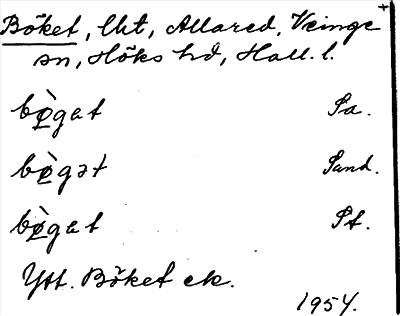 Böket, lkt, Allared, Veinge
sn, Höks hd, Hall. l.
bø̀gat Sa.
bø̀gət Sand.
bø̀gat St.
Ytt. Böket ek.
1954.